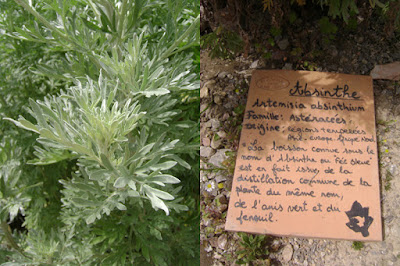 Absinthe
Artemisia absinthium
Famille: Astéracées
Origine: régions tempérées
Asie, europe, Afrique Nord.
La boisson connue sous le
nom d'Absinthe ou "Fée bleue"
est en fait issue, de la
distillation commune de la
plante du même nom,
de l'anis vert et du
fenouil.